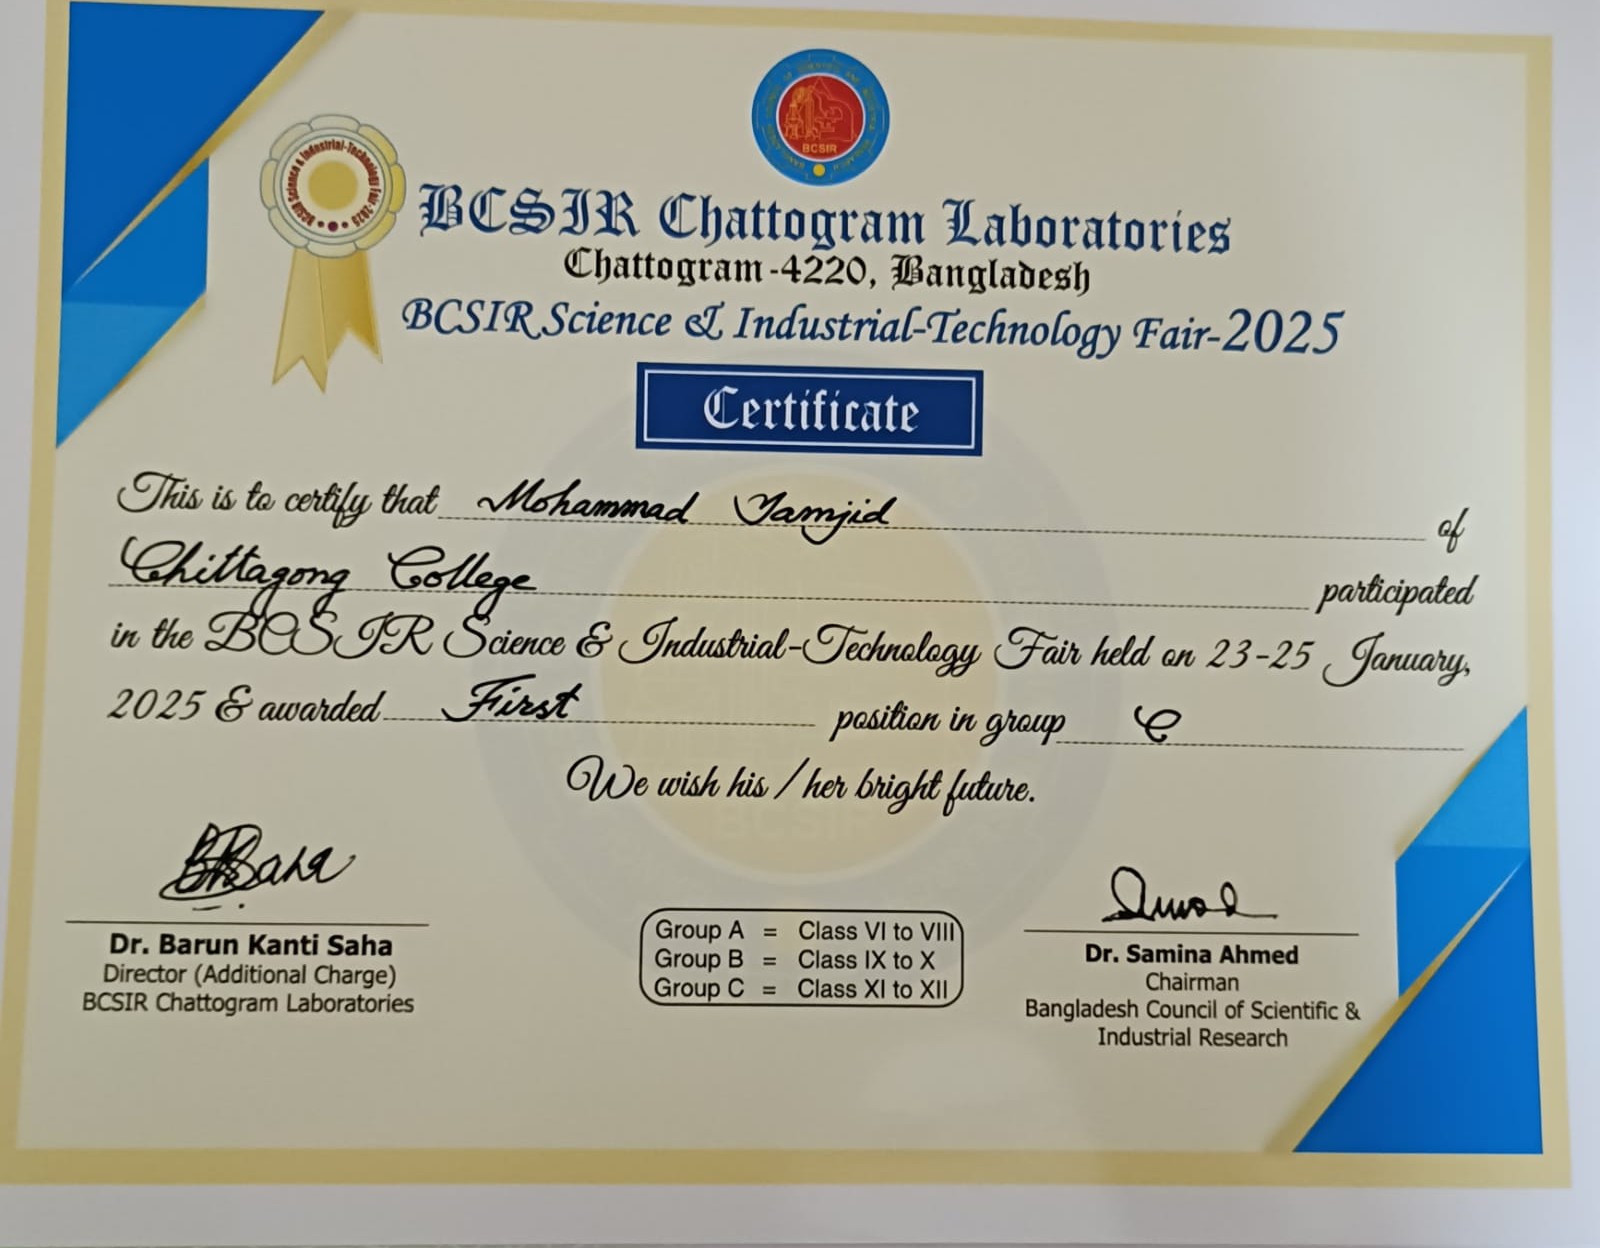 BCSIR Science & Industrial-Technology Fair-2025
BCSIR
BCSIR Chattogram Laboratories
Chattogram-4220, Bangladesh
BCSIR Science & Industrial-Technology Fair-2025
Certificate
This is to certify that Mohammad Tamjid of
Chittagong College participated
in the BCSIR Science & Industrial-Technology Fair held on 23-25 January,
2025 & awarded First position in group C
We wish his / her bright future.
BSaha
Dr. Barun Kanti Saha
Director (Additional Charge)
BCSIR Chattogram Laboratories
Group A = Class VI to VIII
Group B = Class IX to X
Group C = Class XI to XII
Dr. Samina Ahmed
Chairman
Bangladesh Council of Scientific &
Industrial Research